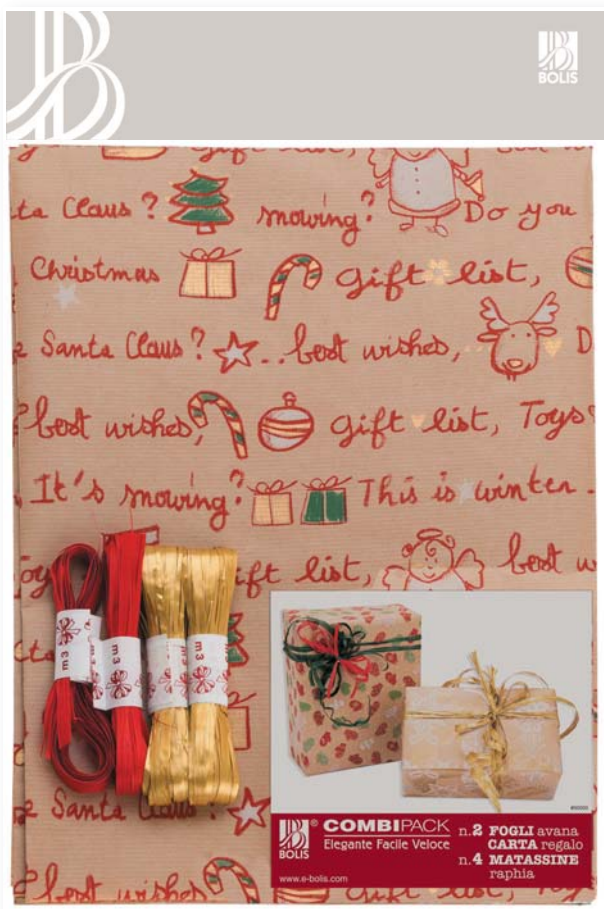 BOLIS
gift list,
ta Claus? snowing? Do you
Christmas gift list,
Santa Claus? ..best wishes, D
best wishes, gift list, Toys
It's snowing? This is winter.
oy ift list, best w
ta
m 3 m 3 m 3 m 3
Santa Claus?
BOLIS ® COMBIPACK
Elegante Facile Veloce
www.e-bolis.com
n.2 FOGLI avana
CARTA regalo
n.4 MATASSINE
raphia
best wishes list,